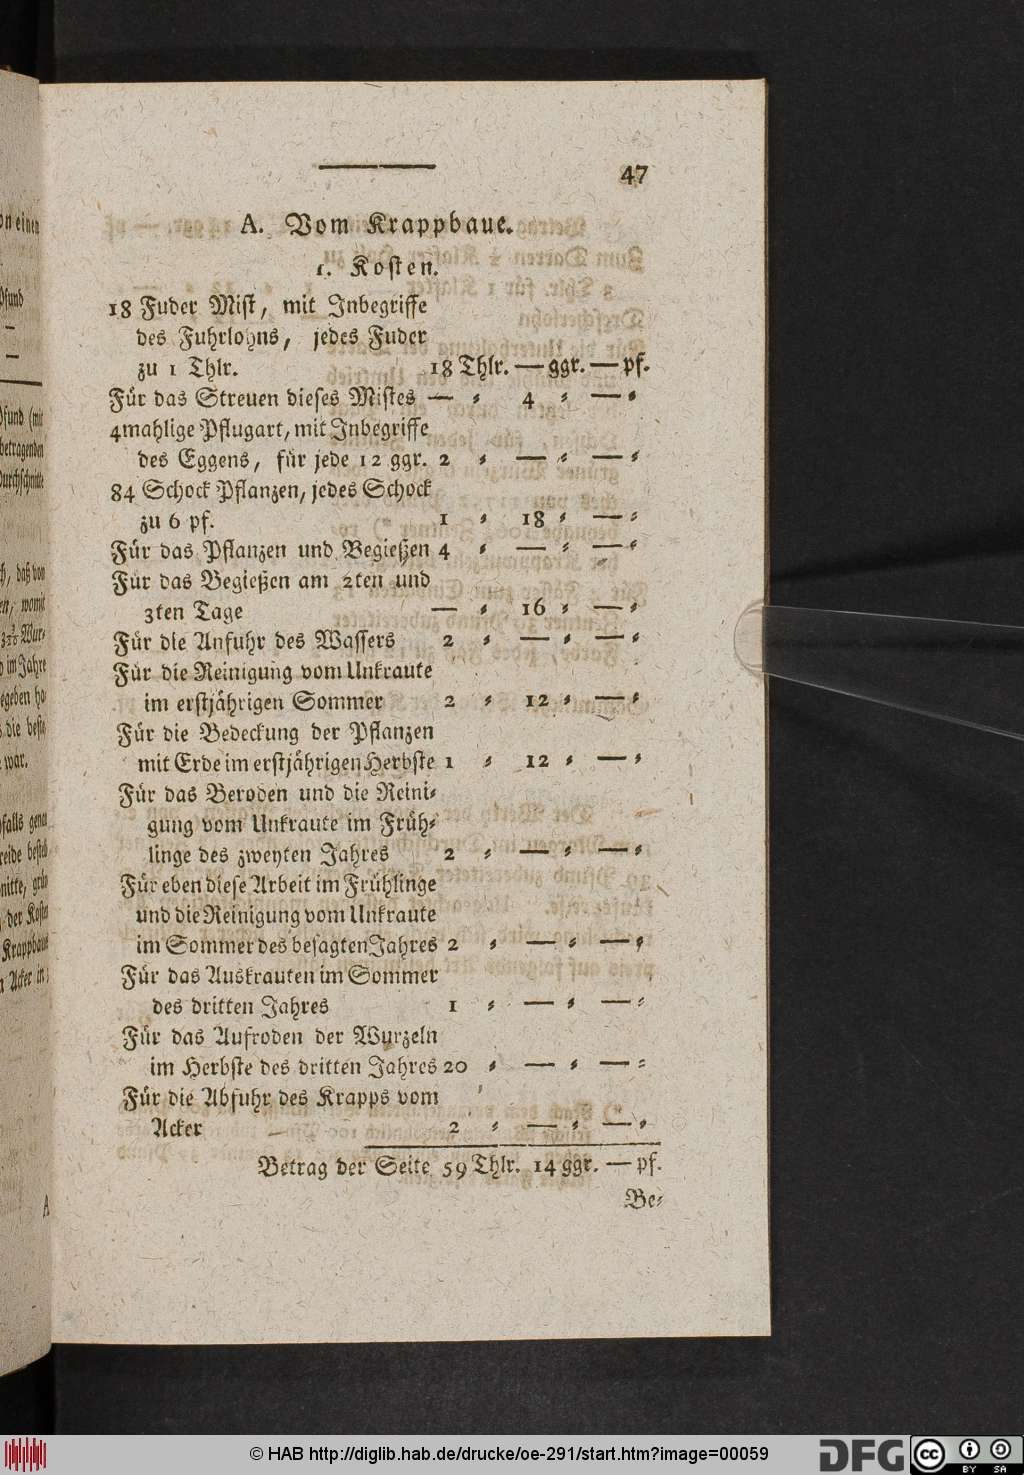 47
A. Vom Krappbaue.
1. Kosten.
18 Fuder Mist, mit Inbegriffe
des Fuhrlohns, jedes Fuder
zu 1 Thlr. 18 Thlr. — ggr. — pf.
Für das Streuen dieses Mistes — ⸗ 4 ⸗ — ⸗
4mahlige Pflugart, mit Inbegriffe
des Eggens, für jede 12 ggr. 2 ⸗ — ⸗ — ⸗
84 Schock Pflanzen, jedes Schock
zu 6 pf. 1 ⸗ 18 ⸗ — ⸗
Für das Pflanzen und Begießen 4 ⸗ — ⸗ — ⸗
Für das Begießen am 2ten und
3ten Tage — ⸗ 16 ⸗ — ⸗
Für die Anfuhr des Wassers 2 ⸗ — ⸗ — ⸗
Für die Reinigung vom Unkraute
im erstjährigen Sommer 2 ⸗ 12 ⸗ — ⸗
Für die Bedeckung der Pflanzen
mit Erde im erstjährigen Herbste 1 ⸗ 12 ⸗ — ⸗
Für das Beroden und die Reini⸗
gung vom Unkraute im Früh⸗
linge des zweyten Jahres 2 ⸗ — ⸗ — ⸗
Für eben diese Arbeit im Frühlinge
und die Reinigung vom Unkraute
im Sommer des besagten Jahres 2 ⸗ — ⸗ — ⸗
Für das Auskrauten im Sommer
des dritten Jahres 1 ⸗ — ⸗ — ⸗
Für das Aufroden der Wurzeln
im Herbste des dritten Jahres 20 ⸗ — ⸗ — ⸗
Für die Abfuhr des Krapps vom
Acker 2 ⸗ — ⸗ — ⸗
Betrag der Seite 59 Thlr. 14 ggr. — pf.
Be⸗
© HAB http://diglib.hab.de/drucke/oe-291/start.htm?image=00059
DFG
cc BY SA